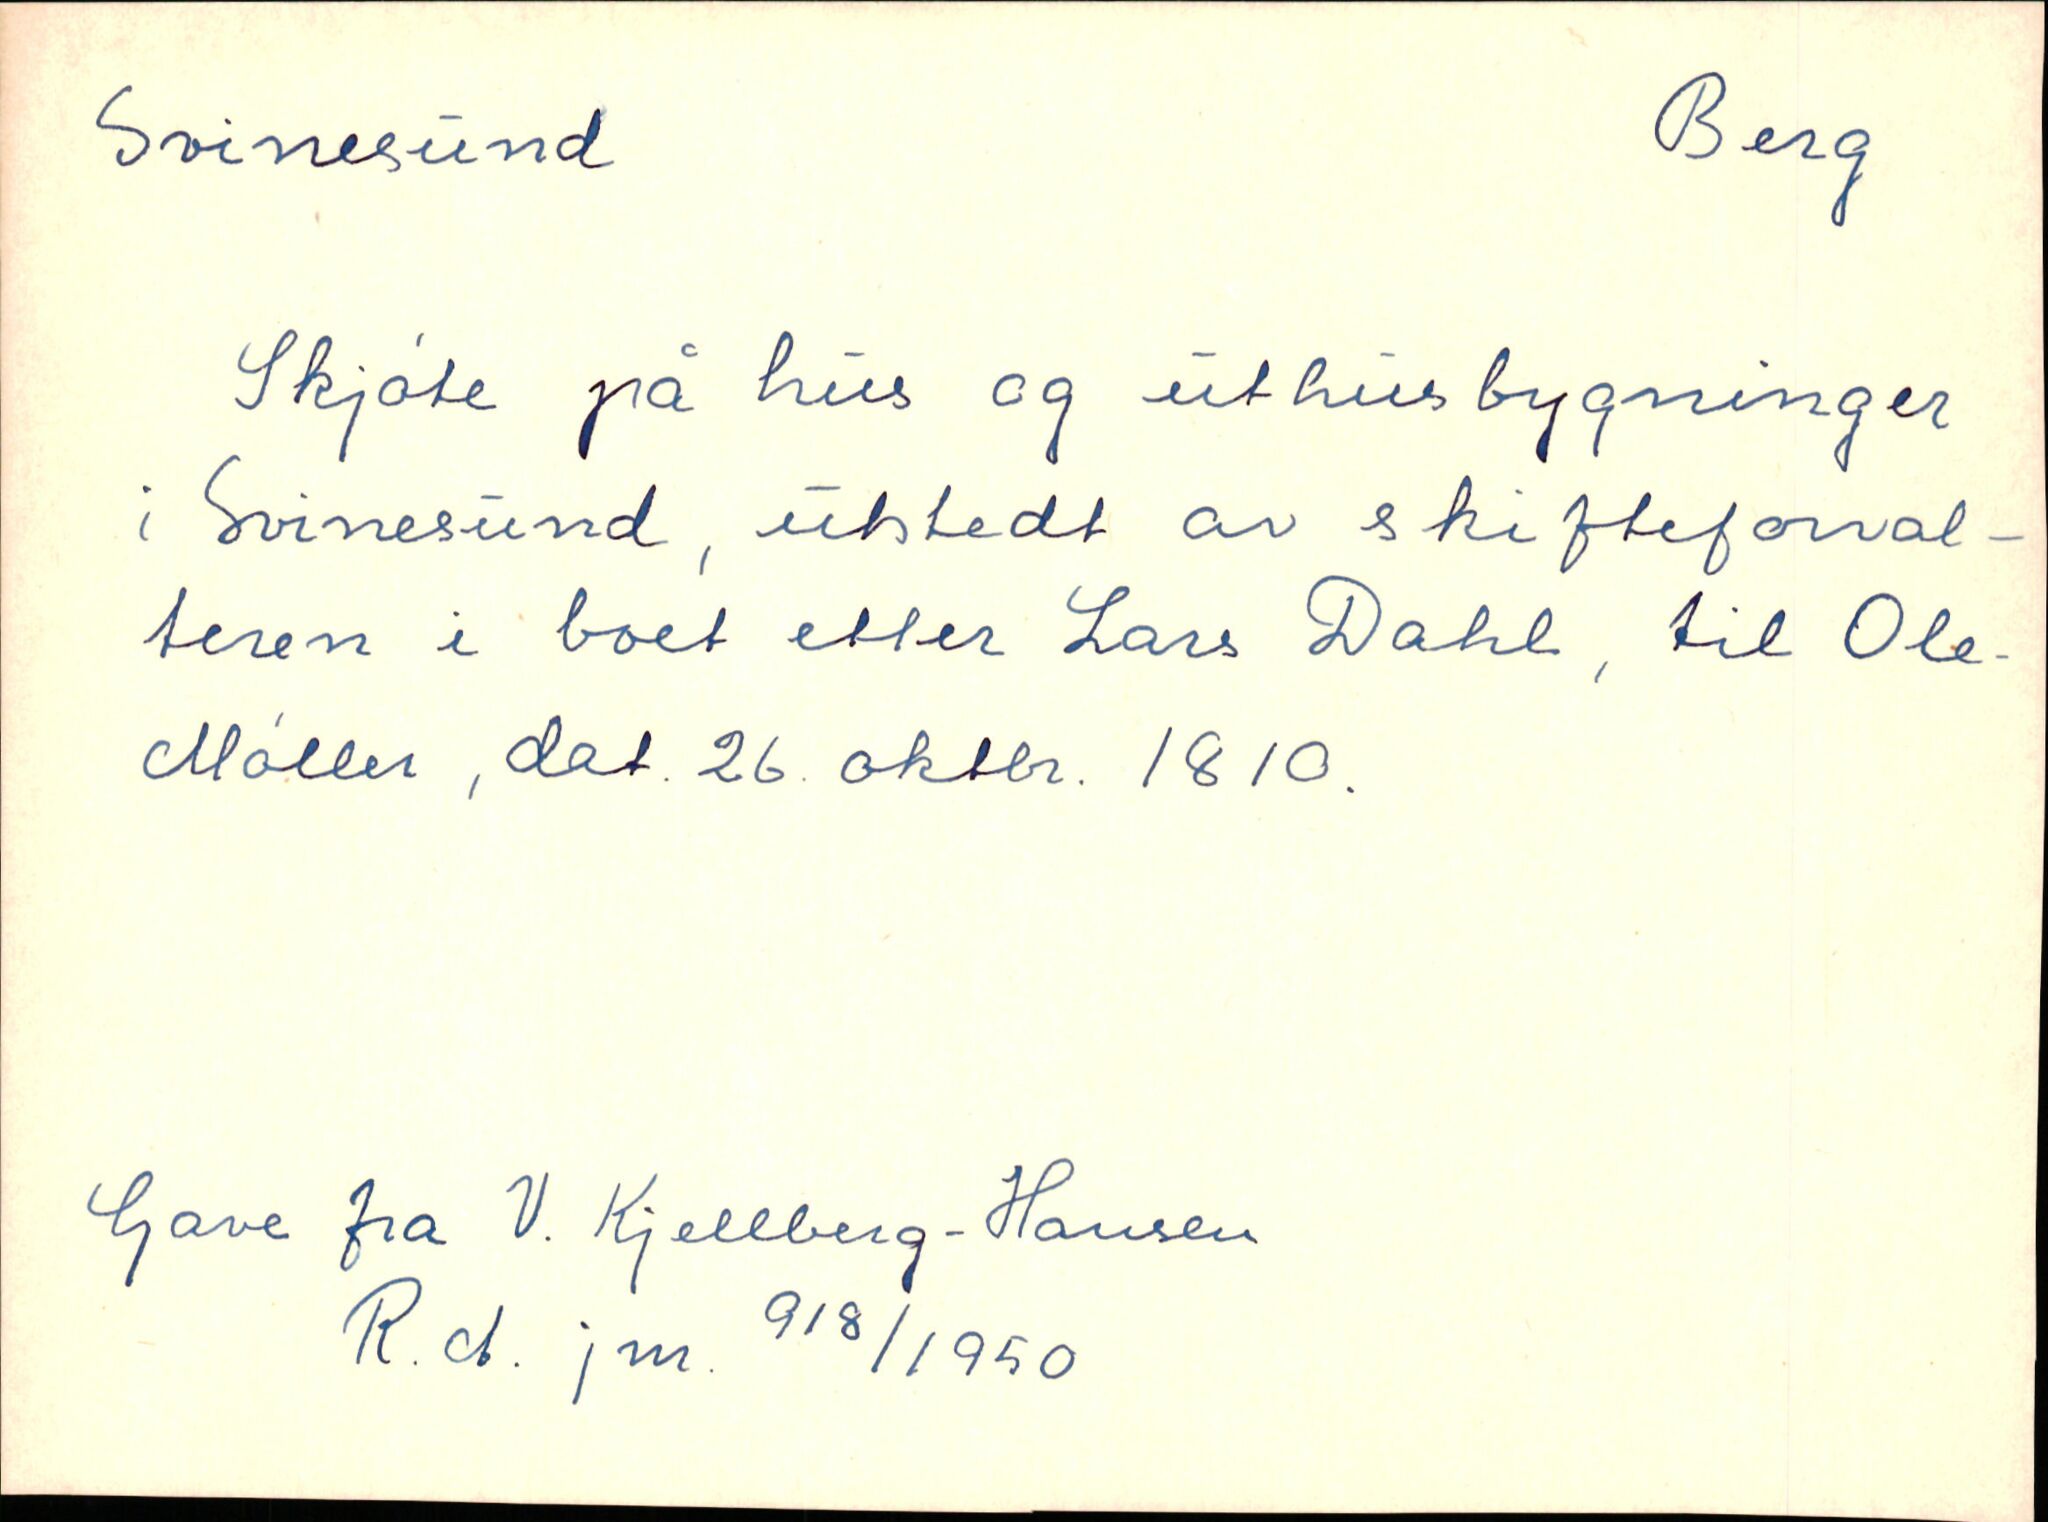 Svinesund Berg
Skjóte på hus og uthusbygninger
i Svinesund, utstedt av skifteforval-
teren i boet etter Lars Dahl, til Ole
Móller, dat. 26. oktbr. 1810.
Gave fra V. Kjellberg-Hansen
R.d. jm. 918/1950